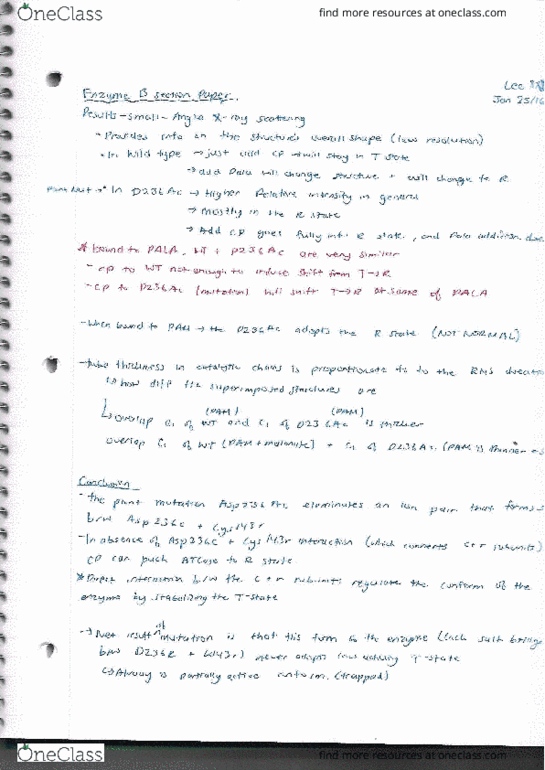 OneClass
find more resources at oneclass.com
Enzyme B section Paper.
Jan 25/16
Results - small - Angle X-ray scattering
• Provides info on the structure's overall shape (low resolution)
• In wild type → just add CP → will stay in T state
→ add Pala will change structure + will change to R
• In D236Ac → Higher Relative intensity in general
→ mostly in the R state
→ Add CP goes fully into R state, and Pala addition
* bound to PALA, WT + D236Ac are very similar
- CP to WT not enough to induce shift from T→R
- CP to D236Ac (mutation) will shift T→R
of PALA
- When bound to PAM → the D236Ac adopts the R state (NOT NORMAL)
- tube thickness in catalytic chains is proportionate to the RMS
↳ how diff the superimposed structures are
(PAM) (PAM)
↳ overlap C1 of WT and C1 of D236Ac is thicker
overlap C1 of WT (PAM + malonate) + C1 of D236Ac (PAM is thinner
Conclusion
- the point mutation Asp236 eleminates an ion pair that forms
b/w Asp 236c + Lys143r
- In absence of Asp236c + Lys143r interaction (which connects c+r subunits)
CP can push ATCase to R state
interaction b/w the c+r subunits regulate the conform of the
enzyme by stabalizing the T-state
→ Net result of mutation is that this form of the enzyme (lack salt bridge
b/w D236 + K143r) never adopts low activity T-state
↳ Always is partially active conform. (trapped)
OneClass
find more resources at oneclass.com